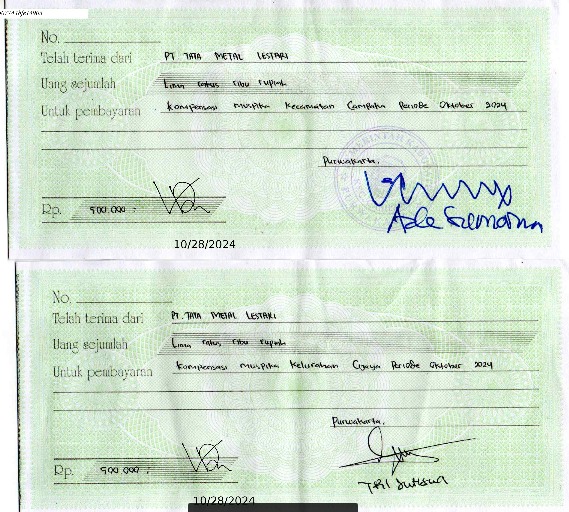 No.
Telah terima dari PT TATA METAL LESTARI
Uang sejumlah Lima ratus ribu rupiah
Untuk pembayaran Kompensasi muspika Kecamatan Campaka Periode Oktober 2024
Purwakarta,
Rp. 500.000 ;
Ade Sumarna
10/28/2024
No.
Telah terima dari PT. TATA METAL LESTARI
Uang sejumlah Lima ratus ribu rupiah
Untuk pembayaran Kompensasi muspika Kelurahan Ciseureuh Periode Oktober 2024
Purwakarta,
Rp. 500.000 ;
TRI Sutisna
10/28/2024